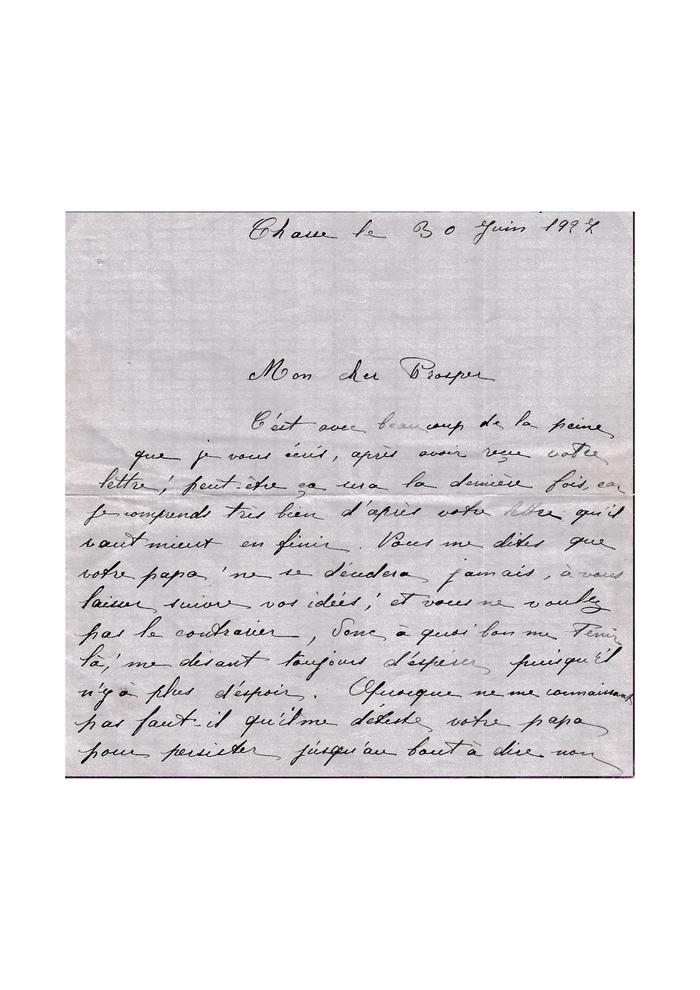 Chasse le 30 Juin 1927
Mon cher Prosper
C'est avec beaucoup de la peine
que je vous écris, après avoir reçu votre
lettre; peut-être ça sera la dernière fois, car
je comprends tres bien d'après votre lettre qu'il
vaut mieux en finir. Vous me dites que
votre papa ne se décidera jamais, à vous
laisser suivre vos idées; et vous ne voulez
pas le contrarier, donc à quoi bon me tenir
là, me disant toujours d'espérer puisqu'il
n'y à plus d'espoir. Quoique ne me connaissant
pas faut-il qu'il me déteste votre papa
pour persister jusqu'au bout à dire non